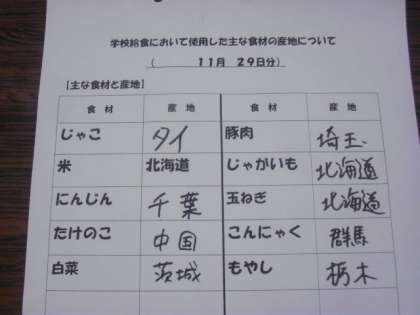 学校給食において使用した主な食材の産地について
( 11月 29日分)
【主な食材と産地】
食 材 産 地 食 材 産 地
じゃこ タイ 豚肉 埼玉
米 北海道 じゃがいも 北海道
にんじん 千葉 玉ねぎ 北海道
たけのこ 中国 こんにゃく 群馬
白菜 茨城 もやし 栃木